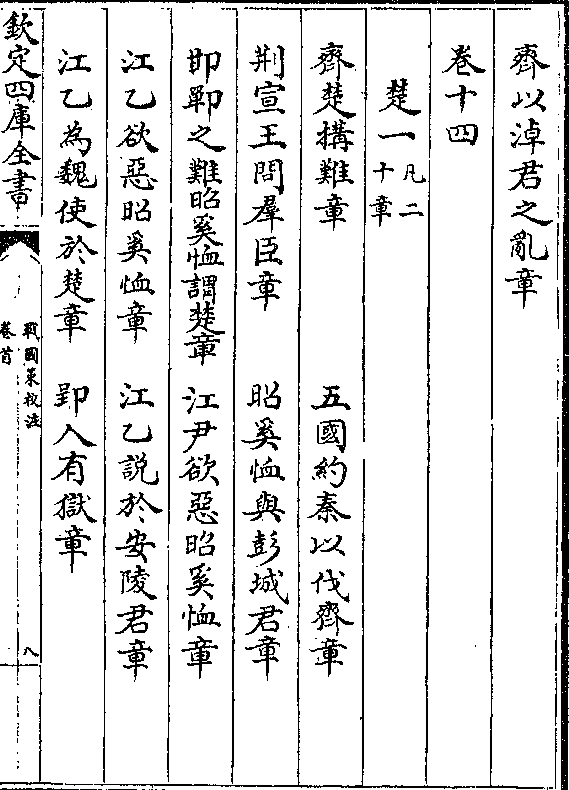 齊以淖君之亂章
卷十四
楚一凡二十章
齊楚搆難章　五國約秦以伐齊章
荆宣王問羣臣章　昭奚恤與彭城君章
邯鄲之難昭奚恤謂楚章　江尹欲惡昭奚恤章
江乙欲惡昭奚恤章　江乙説於安陵君章
江乙為魏使於楚章　郢人有獄章
欽定四庫全書
戰國策校注
卷首
八